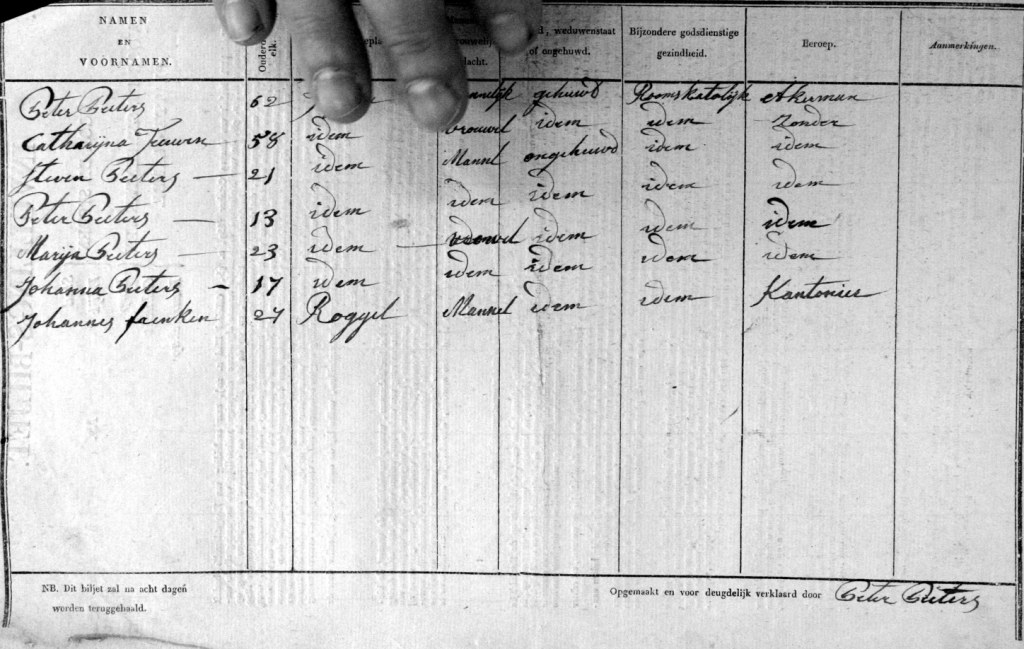 NAMEN EN VOORNAMEN. Ouderdom elk. , weduwenstaat of ongehuwd. Bijzondere godsdienstige gezindheid. Beroep. Aanmerkingen.
Peter Peeters 62 gehuwd Roomskatolijk Akerman
Catharijna Teuwen 58 idem vrouwel idem idem Zonder
Steven Peeters 21 idem Mannel ongehuwd idem idem
Peter Peeters 13 idem idem idem idem idem
Marija Peeters 23 idem vrouwel idem idem idem
Johanna Peeters 17 idem idem idem idem idem
Johannes faenken 27 Roggel Mannel idem idem Kantonier
NB. Dit biljet zal na acht dagen
worden teruggehaald.
Opgemaakt en voor deugdelijk verklaard door Peter Peeters